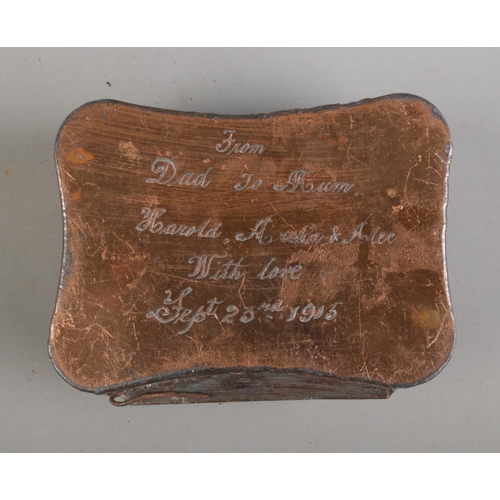 From
Dad To Mum.
Harold, & Alec
With love
Sept 23rd 1915